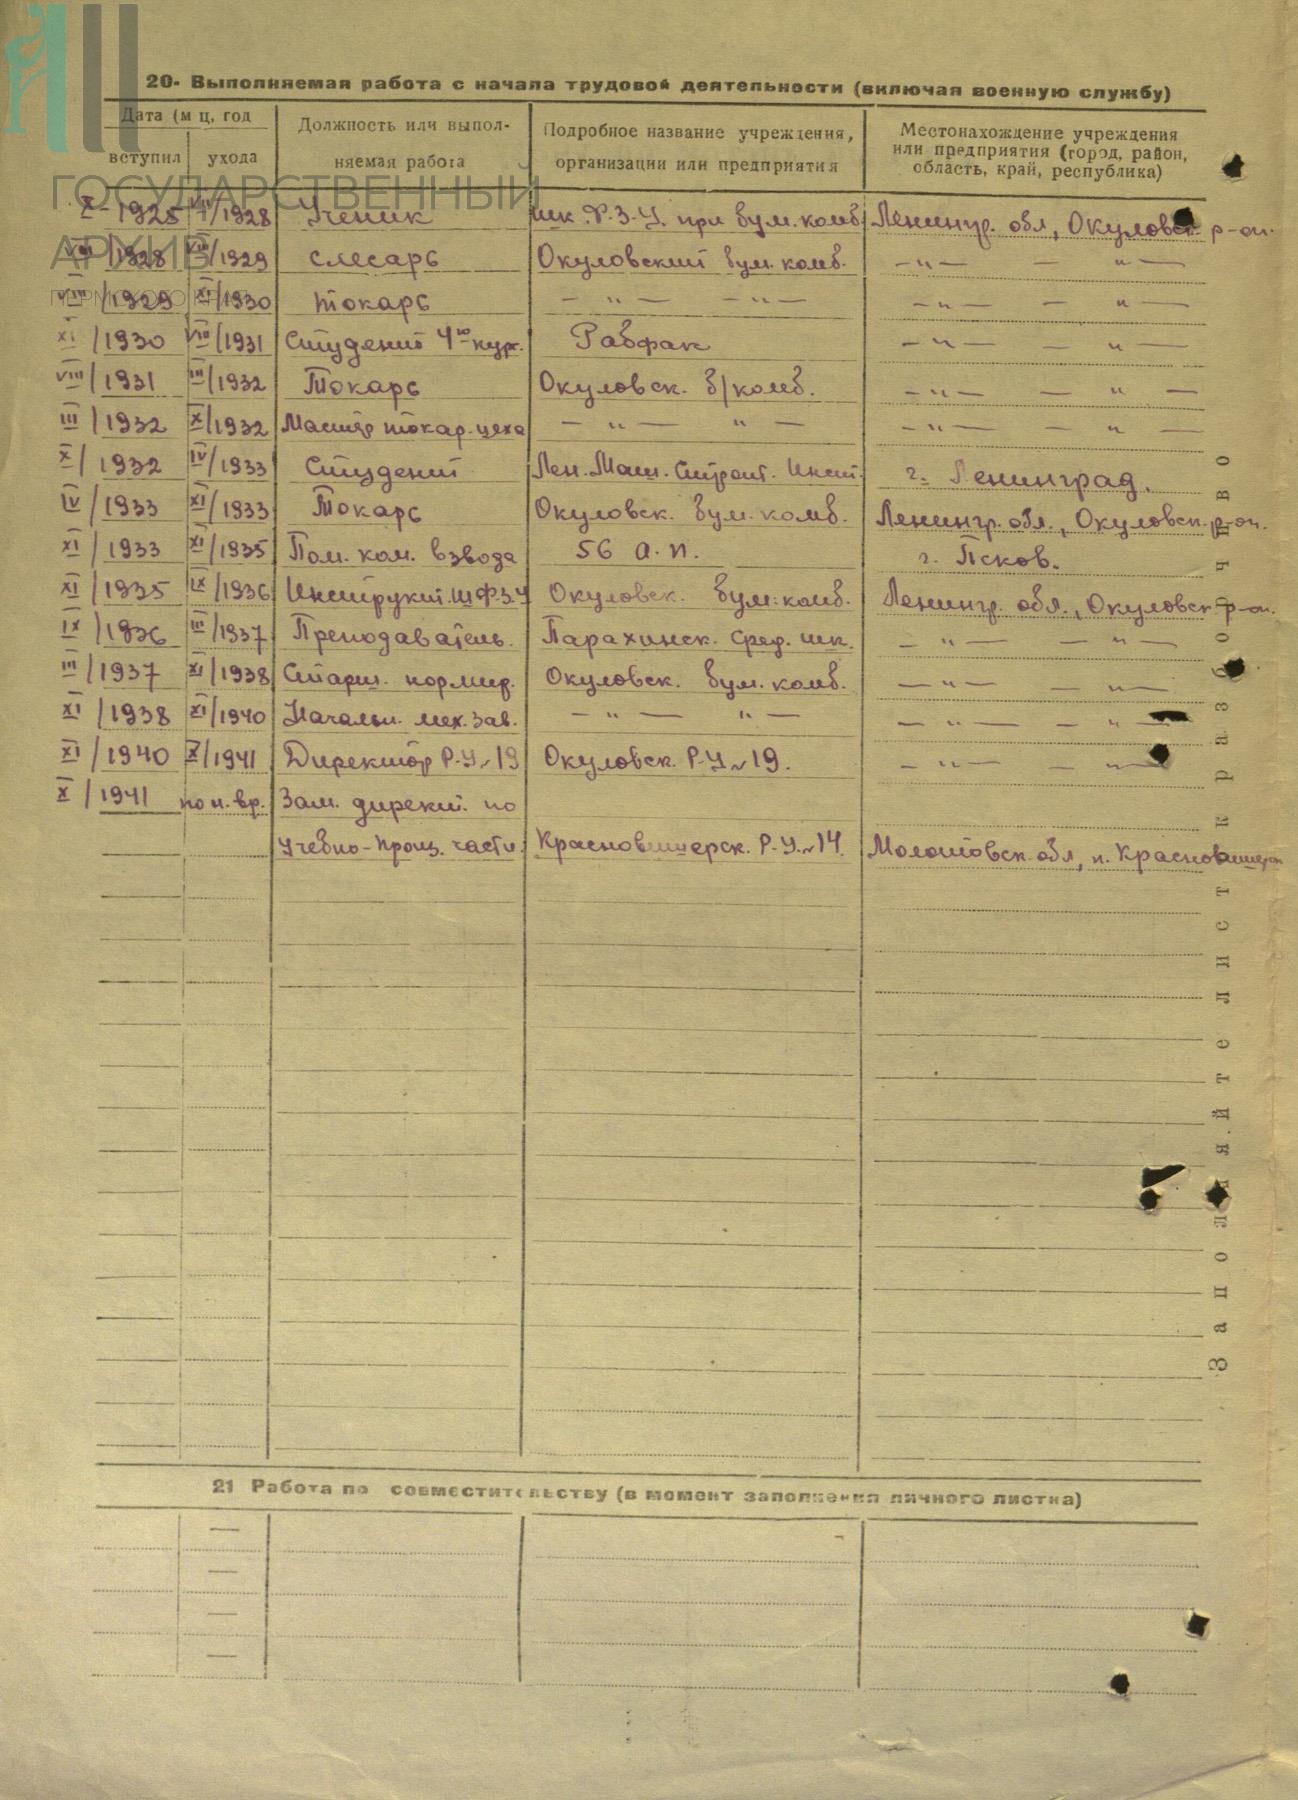 20- Выполняемая работа с начала трудовой деятельности (включая военную службу)
Дата (м ц, год
вступил ухода
Должность или выпол-
няемая работа
Подробное название учреждения,
организации или предприятия
Местонахождение учреждения
или предприятия (город, район,
область, край, республика)
ГОСУДАРСТВЕННЫЙ
АРХИВ
X-1925 VIII/1928 Ученик шк. Ф.З.У. при бум. комб. Ленингр. обл, Окуловск. р-он.
VIII/1928 VIII/1929 слесарь Окуловский бум. комб. — " — — " —
VIII/1929 XI/1930 токарь — " — — " — — " — — " —
XI/1930 VIII/1931 Студент 4го кур. Рабфак — " — — " —
VIII/1931 III/1932 Токарь Окуловск. б/комб. — " — — " —
III/1932 X/1932 Мастер токар. цеха — " — " — — " — — " —
X/1932 IV/1933 Студент Лен. Маш. Строит. Инст. г. Ленинград.
IV/1933 XI/1933 Токарь Окуловск. бум. комб. Ленингр. обл., Окуловск. р-он.
XI/1933 XI/1935 Пом. ком. взвода 56 а.п. г. Псков.
XI/1935 IX/1936 Инструкт. ШФЗУ Окуловск. бум. комб. Ленингр. обл., Окуловск р-он.
IX/1936 III/1937 Преподаватель. Парахинск. сред. шк. — " — — " —
III/1937 XI/1938 Старш. нормир. Окуловск. бум. комб. — " — — " —
XI/1938 XI/1940 Начальн. мех. зав. — " — " — — " — — " —
XI/1940 X/1941 Директор Р.У. №19 Окуловск. Р.У. №19. — " — — " —
X/1941 по н. вр. Зам. директ. по
учебно-произ. части. Красновишерск. Р.У. №14. Молотовск. обл, п. Красновишерск
Заполняйте лист разборчиво
21 Работа по совместительству (в момент заполнения личного листка)
—
—
—
—